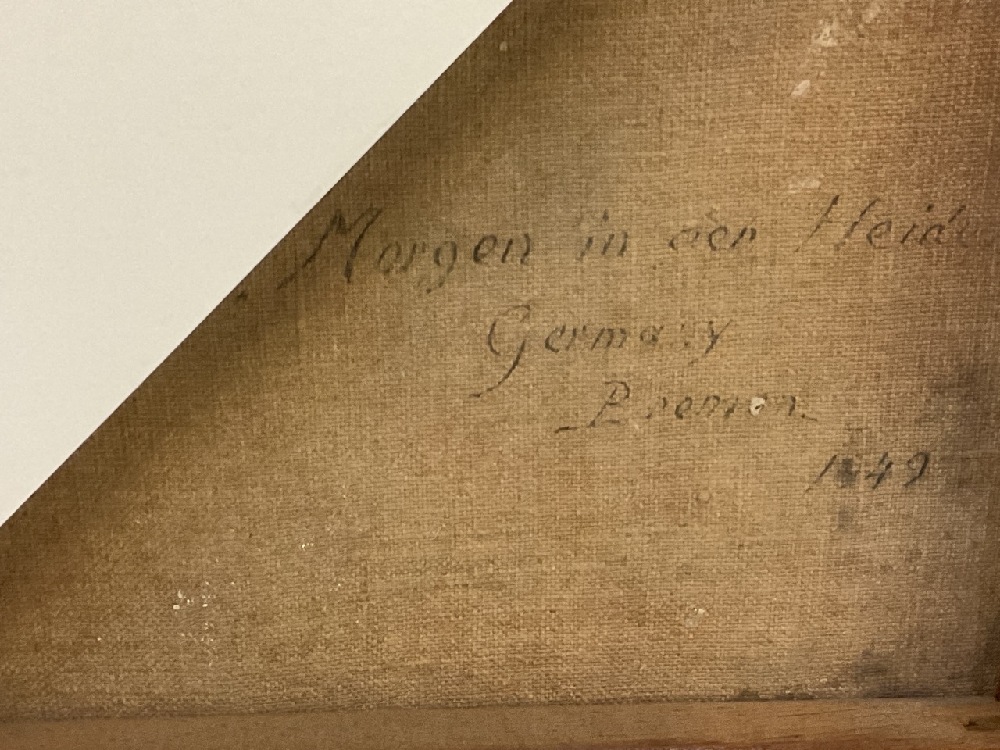 Morgen in der Heide
Germany
Bremen
1949